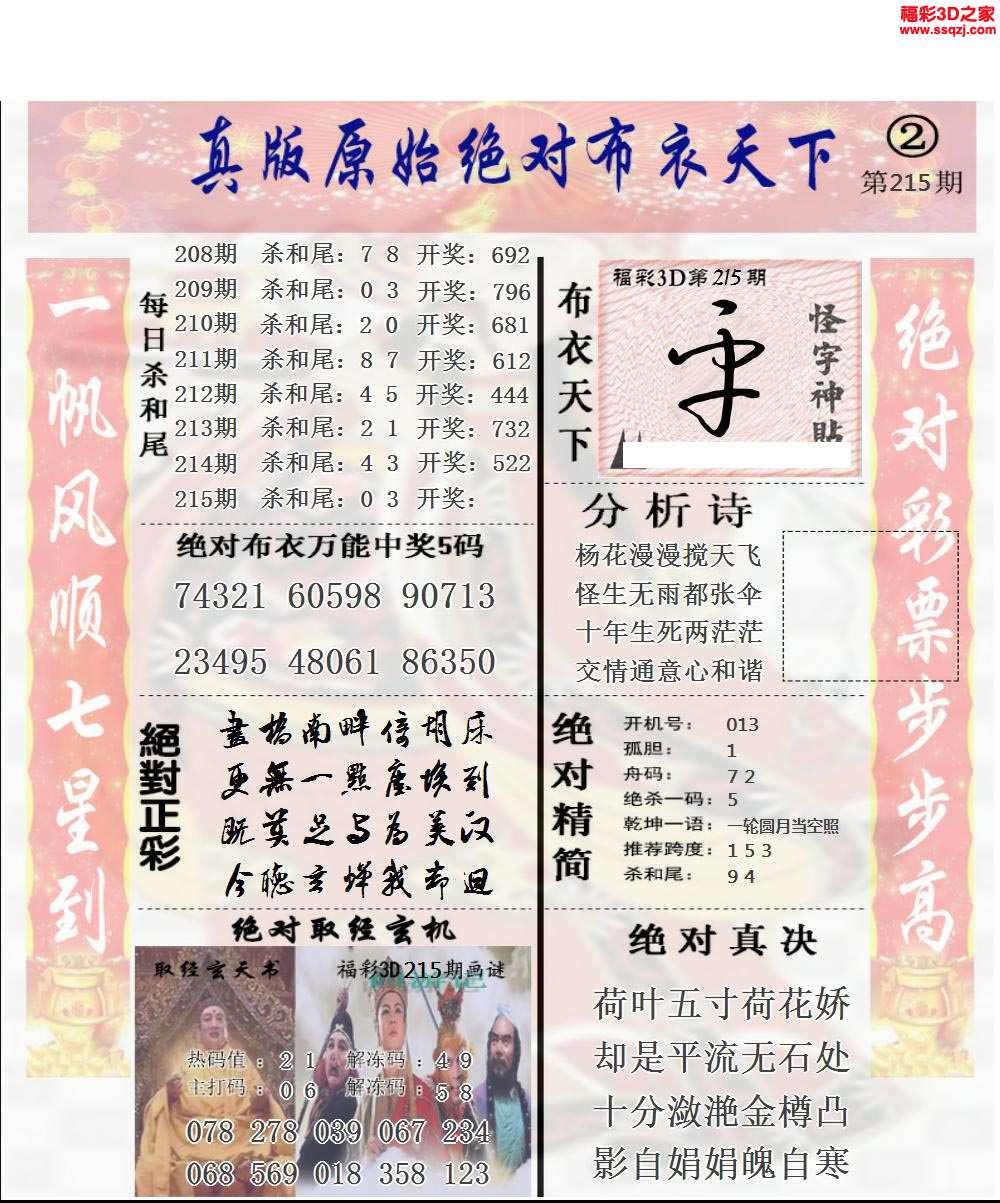 福彩3D之家
www.ssqzj.com
真版原始绝对布衣天下
②
第215期
一帆风顺七星到
每日杀和尾
208期 杀和尾：7 8 开奖：692
209期 杀和尾：0 3 开奖：796
210期 杀和尾：2 0 开奖：681
211期 杀和尾：8 7 开奖：612
212期 杀和尾：4 5 开奖：444
213期 杀和尾：2 1 开奖：732
214期 杀和尾：4 3 开奖：522
215期 杀和尾：0 3 开奖：
绝对布衣万能中奖5码
74321 60598 90713
23495 48061 86350
絕對正彩
畫橋南畔倚胡床
更無一點塵埃到
今聽玄蟬我却迴
绝对取经玄机
取经玄天书
福彩3D215期画谜
热码值：2 1 解冻码：4 9
主打码：0 6 解冻码：5 8
078 278 039 067 234
068 569 018 358 123
布衣天下
福彩3D第215期
怪字神貼
分析诗
杨花漫漫搅天飞
怪生无雨都张伞
十年生死两茫茫
交情通意心和谐
绝对精简
开机号： 013
孤胆： 1
舟码： 7 2
绝杀一码：5
乾坤一语：一轮圆月当空照
推荐跨度：1 5 3
杀和尾： 9 4
绝对真决
荷叶五寸荷花娇
却是平流无石处
十分潋滟金樽凸
影自娟娟魄自寒
绝对彩票步步高